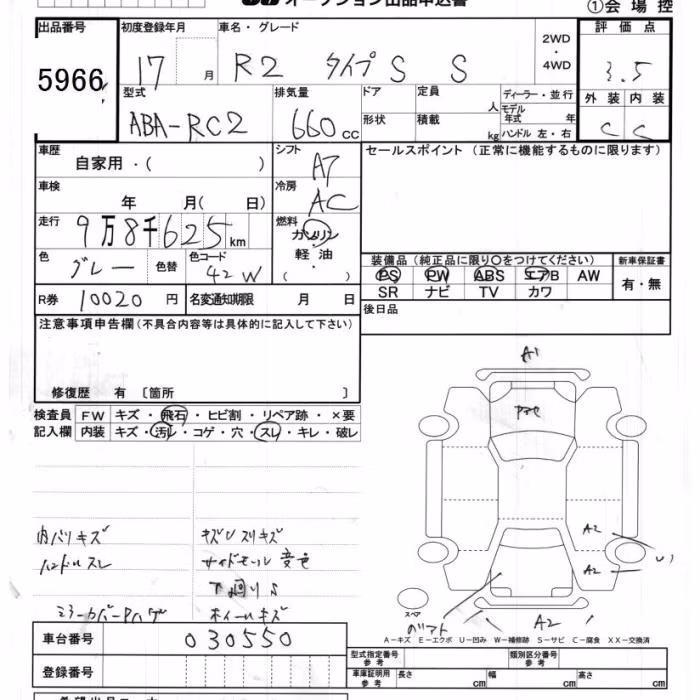 オークション出品申込書
①会場控
出品番号 5966
初度登録年月 17 月
車名・グレード R2 タイプS S
2WD・4WD
評価点 3.5
型式 ABA-RC2
排気量 660 cc
ドア 形状
定員 人
積載 kg
ディーラー・並行
モデル年式 年
ハンドル 左・右
外装 内装
C C
車歴 自家用・( )
シフト A7
セールスポイント (正常に機能するものに限ります)
車検 年 月( 日)
冷房 AC
走行 9万8千625km
燃料 ガソリン・軽油・( )
色 グレー 色替
色コード 42W
装備品 (純正品に限り○をつけてください)
新車保証書
PS PW ABS エアB AW
有・無
SR ナビ TV カワ
R券 10020 円
名変通知期限 月 日
後日品
注意事項申告欄 (不具合内容等は具体的に記入して下さい)
修復歴 有 〔箇所 〕
検査員記入欄
FW キズ・飛石・ヒビ割・リペア跡・×要
内装 キズ・汚レ・コゲ・穴・スレ・キレ・破レ
A1
内バリキズ
キズUスリキズ
A2
ハンドルスレ
サイドモール変色
A2
下廻りS
ミラーカバーPハゲ
ホイールキズ
スペア
A2
A-キズ E-エクボ U-凹み W-補修跡 S-サビ C-腐食 XX-交換済
車台番号 030550
型式指定番号 参考
類別区分番号 参考
登録番号
車庫証明用 参考 長さ cm 幅 cm 高さ cm